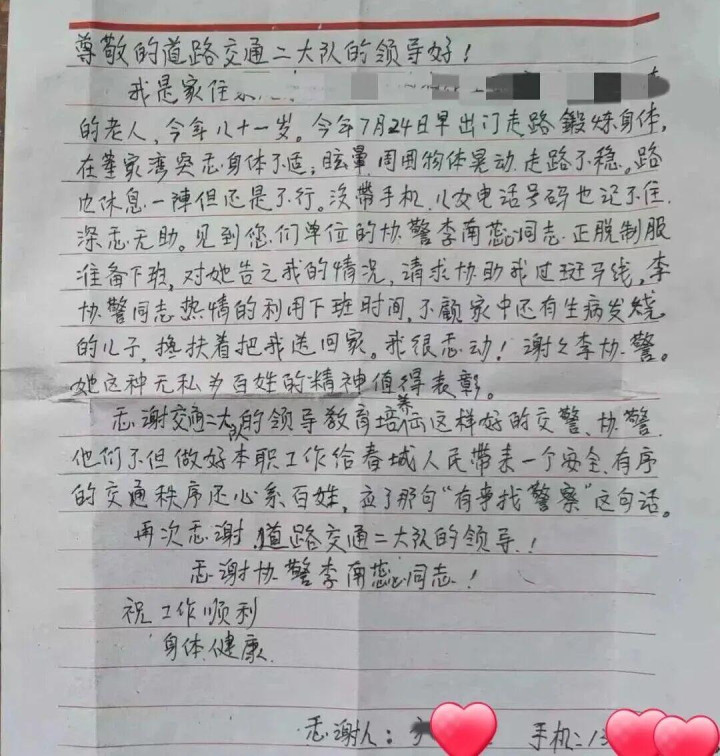 尊敬的道路交通二大队的领导好！
我是家住
的老人，今年八十一岁。今年7月24日早出门走路锻炼身体，
在董家湾突感身体不适；眩晕周围物体晃动走路不稳。路
也休息一陣但还是不行。没带手机儿女电话号码也记不住
深感无助。见到您们单位的协警李南蕊同志正脱制服
准备下班，对她告之我的情况，请求协助我过斑马线，李
协警同志热情的利用下班时间，不顾家中还有生病发烧
的儿子，搀扶着把我送回家。我很感动！谢谢李协警。
她这种无私为百姓的精神值得表彰。
感谢交通二大队的领导教育培养出这样好的交警、协警
他们不但做好本职工作给春城人民带来一个安全、有序
的交通秩序还心系百姓，应了那句“有事找警察”这句话。
再次感谢道路交通二大队的领导！
感谢协警李南蕊同志！
祝工作顺利
身体健康
感谢人： 手机：13